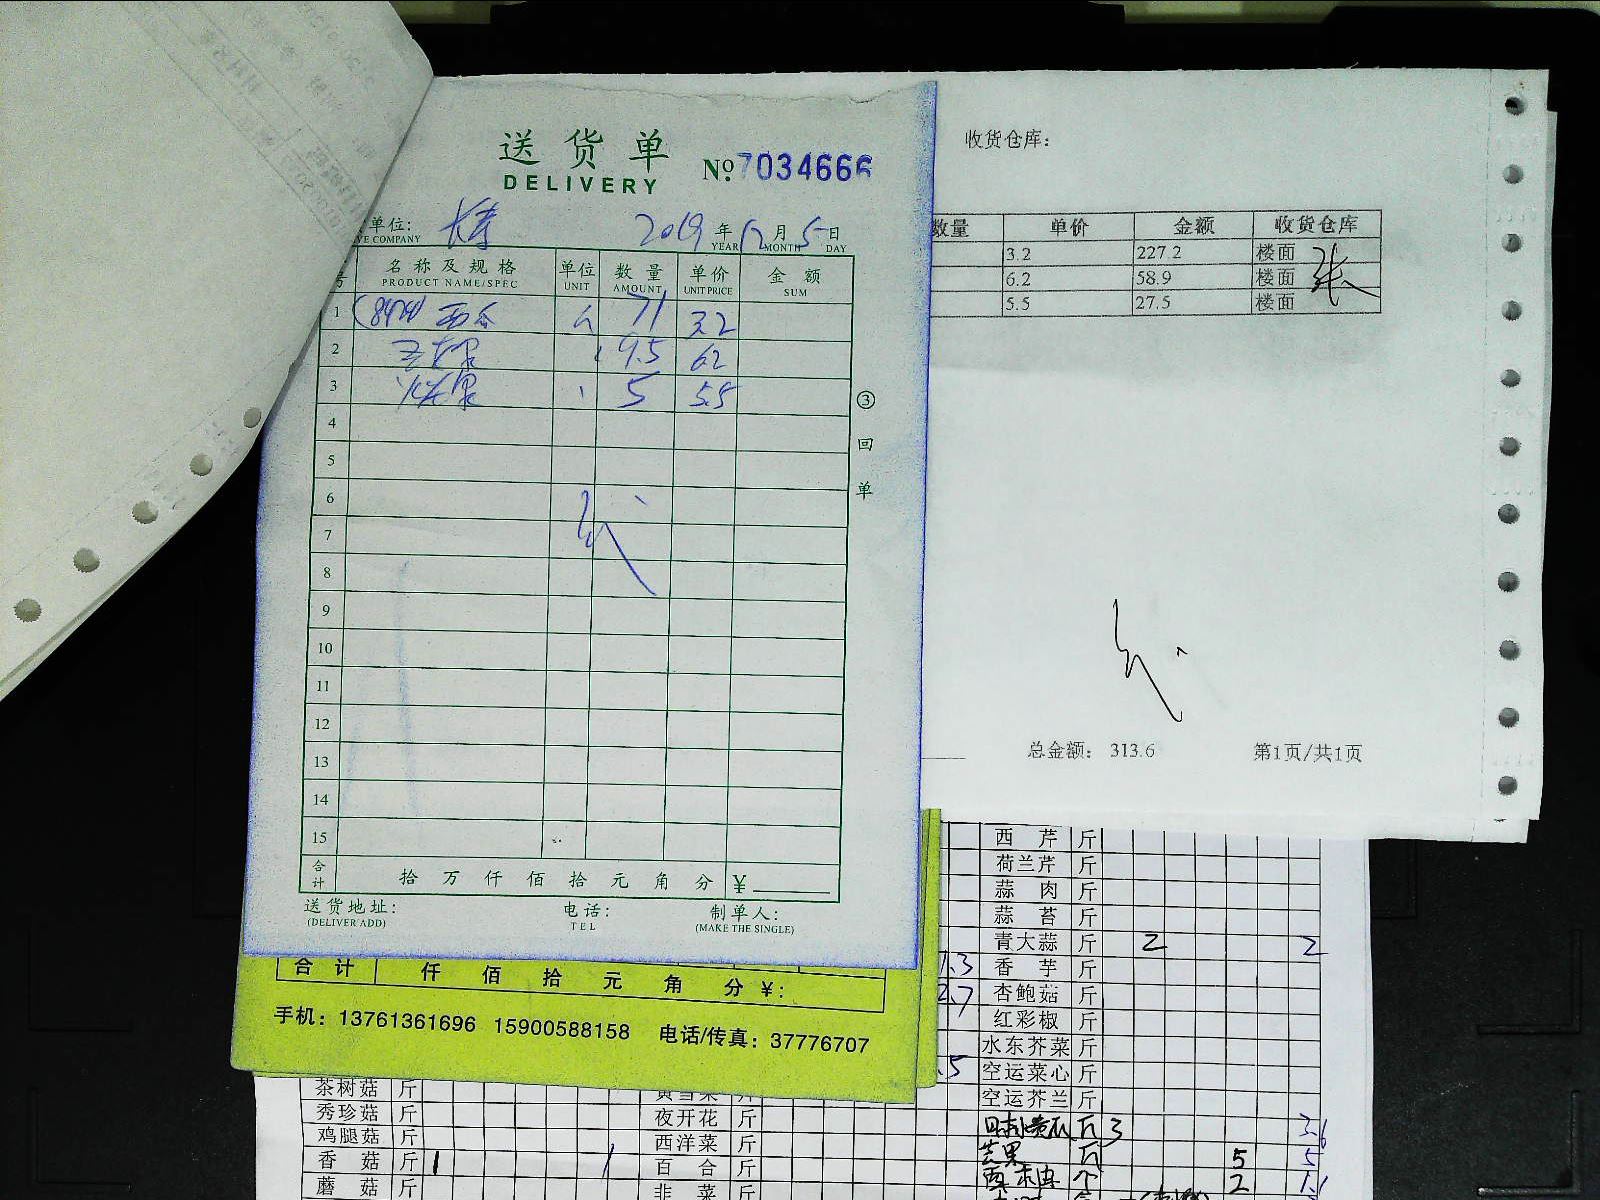 送货单
DELIVERY
№7034666
单位:
VE COMPANY
2019 年 12 月 5 日
YEAR MONTH DAY
号 名称及规格 单位 数量 单价 金额
PRODUCT NAME/SPEC UNIT AMOUNT UNIT PRICE SUM
1 (8424) 西瓜 71 3.2
2 9.5 6.2
3 5 5.5
4
5
6
7
8
9
10
11
12
13
14
15
③回单
合计 拾 万 仟 佰 拾 元 角 分 ¥
送货地址: 电话: 制单人:
(DELIVER ADD) TEL (MAKE THE SINGLE)
收货仓库:
数量 单价 金额 收货仓库
3.2 227.2 楼面
6.2 58.9 楼面
5.5 27.5 楼面
总金额: 313.6 第1页/共1页
合计 仟 佰 拾 元 角 分 ¥:
手机: 13761361696 15900588158 电话/传真: 37776707
西芹 斤
荷兰芹 斤
蒜肉 斤
蒜苔 斤
青大蒜 斤 2 2
1.3 香芋 斤
2.7 杏鲍菇 斤
红彩椒 斤
水东芥菜 斤
.5 空运菜心 斤
空运芥兰 斤
斤 3 3.6
芒果 斤 5 5
个 2 1.1
茶树菇 斤
秀珍菇 斤 夜开花 斤
鸡腿菇 斤 西洋菜 斤
香菇 斤 1 1 百合 斤
蘑菇 斤 韭菜 斤